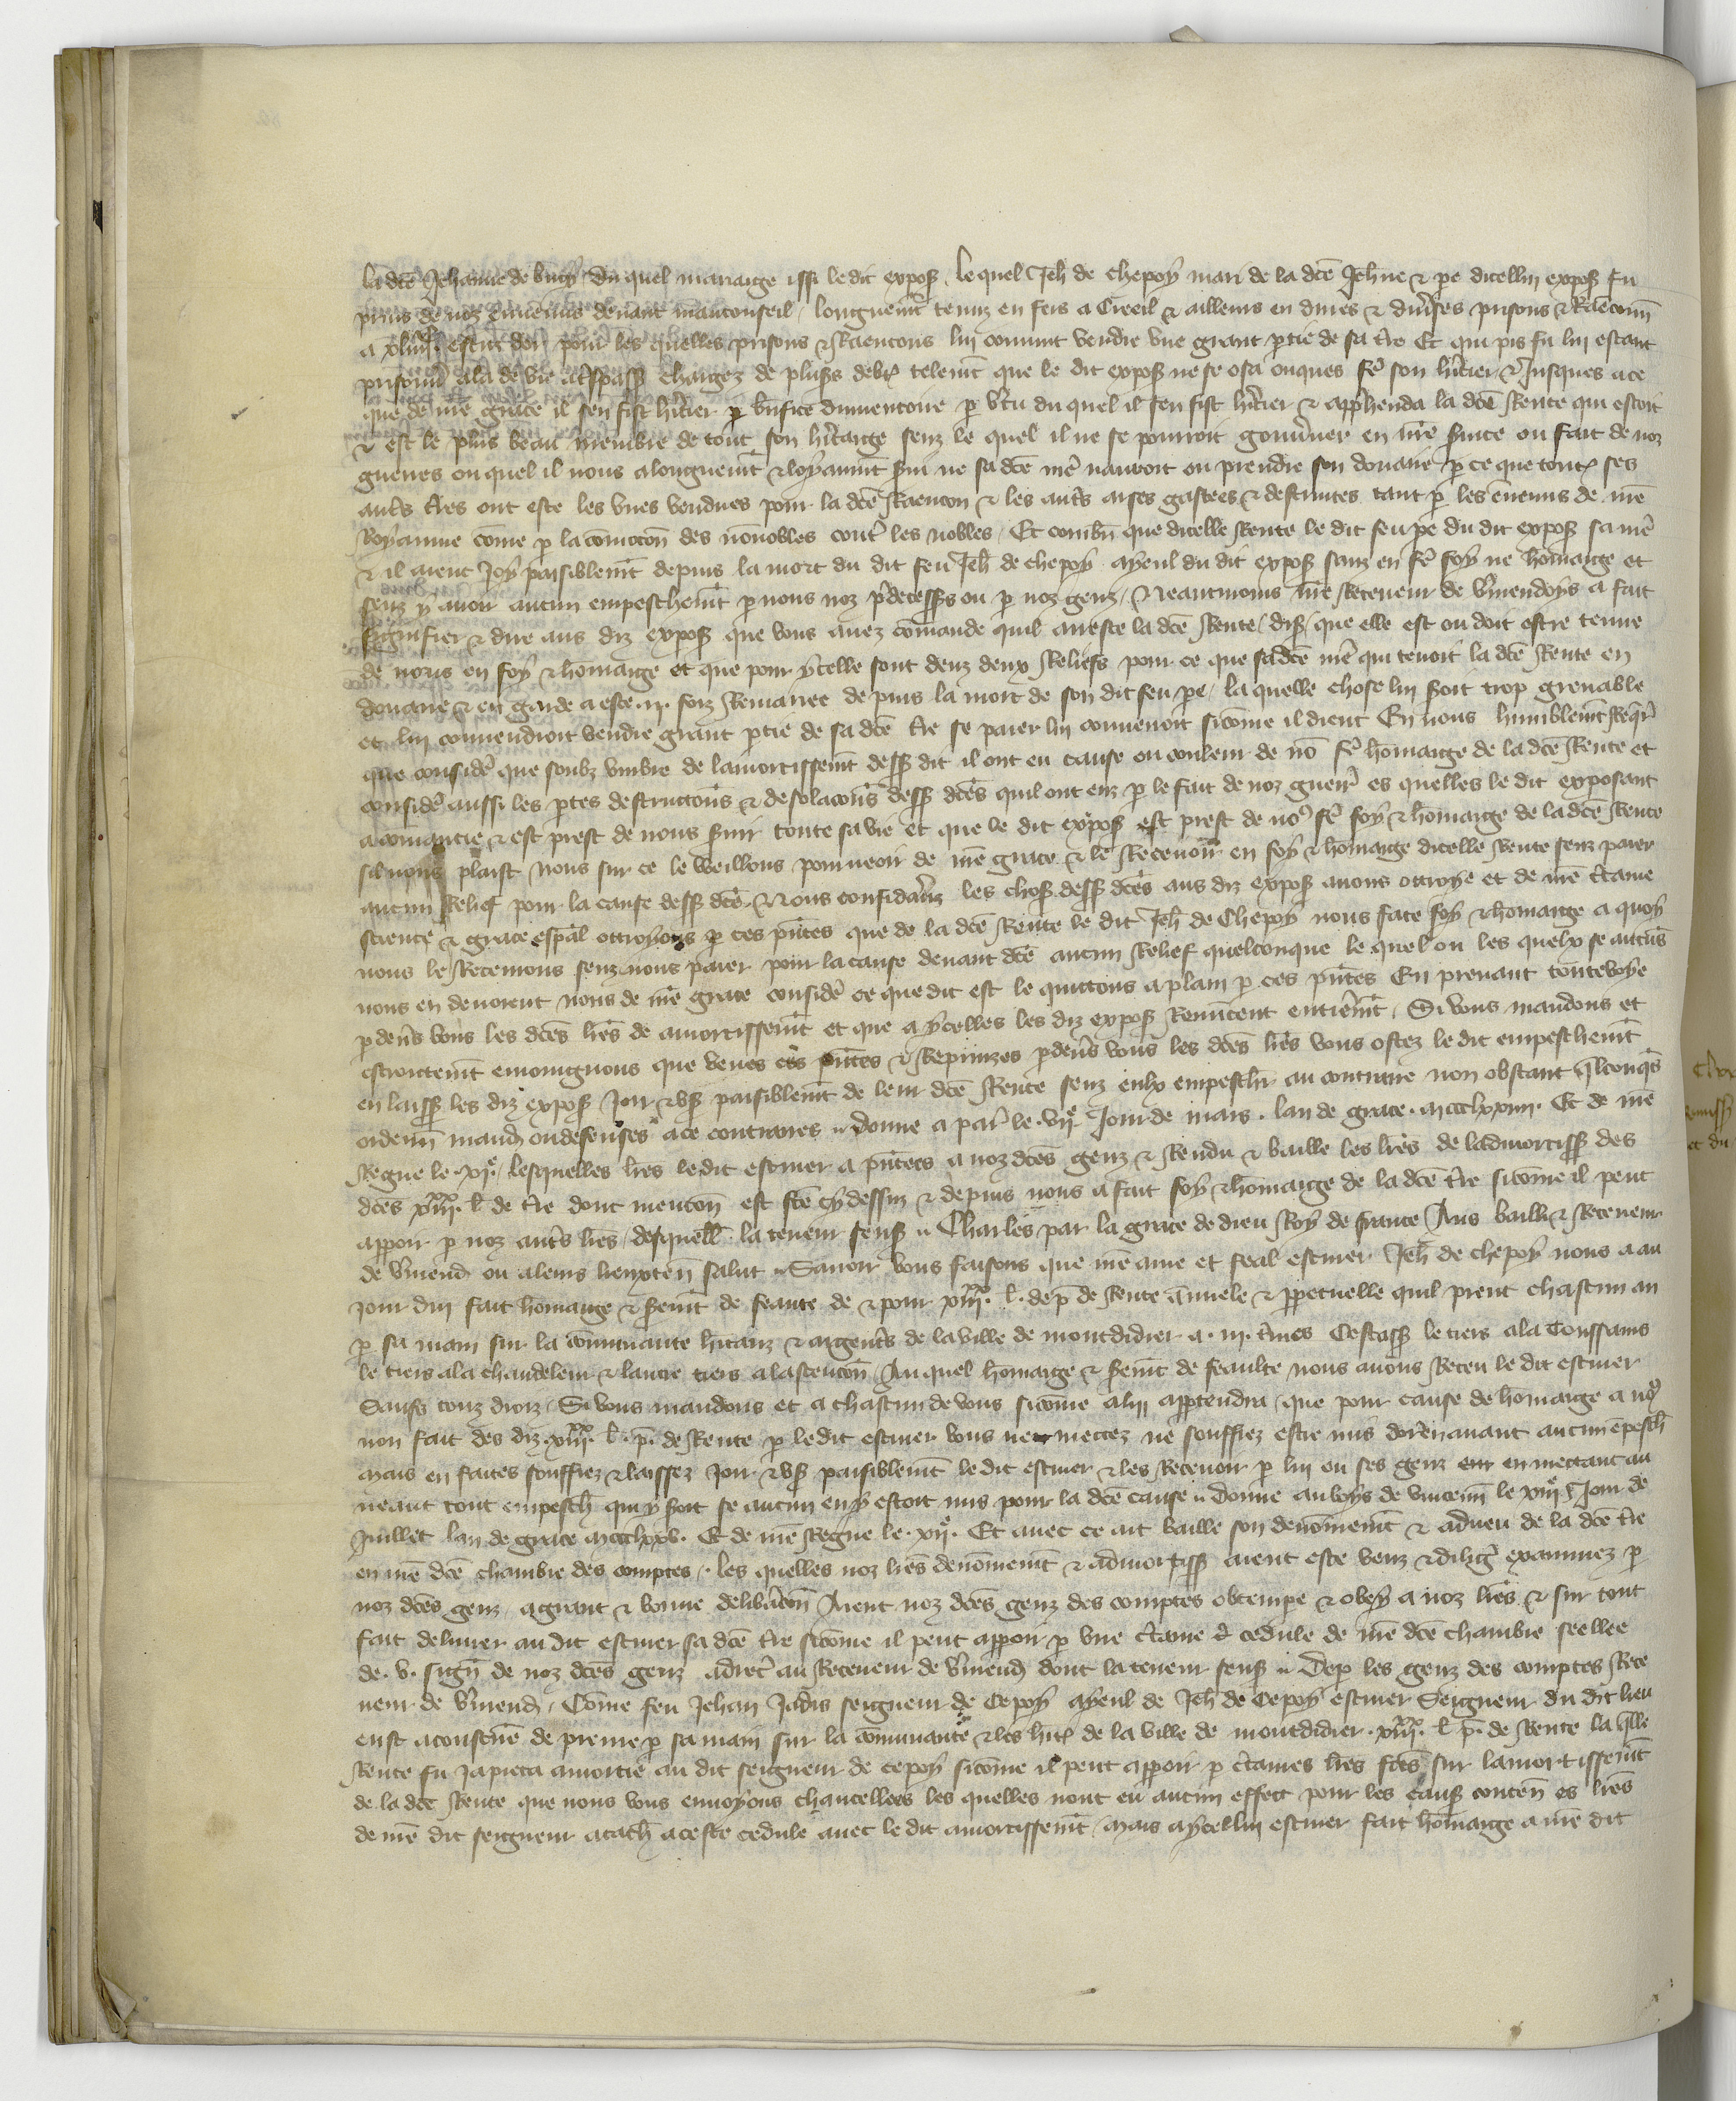 la dce Jehanne de bucy du quel mariaige issi le dit expos. le quel Jeh de chepoy mari de la dce Jehne & pe dicellui expos fu
prins de noz ennemis devant mauconseil longuemt tenuz en fers a Creeil & ailleurs en dures & divses prisons & Raenconn
a escuz dor pour les quelles prisons & Raencons lui convint vendre une grant ptie de sa tre Et qui pis fu lui estant
prisonn ala de vie a trespass chargez de pluss debt telemt que le dit expos ne se osa onques fe son hitier & Jusques a ce
que de nre grace il sen fist hitier p bnfice dinventoire p vtu du quel il sen fist hitier & apphenda la dce Rente qui estoit
& est le plus beau membre de tout son hitaige senz le quel il ne se pourroit gouvner en nre svice ou fait de noz
guerres ou quel il nous a longuemt & loyaumt svi ne sa dce me nauroit ou prendre son douaire p ce que tout ses
auts tres ont este les unes vendues pour la dce Raencon & les auts arses gastees & destruites tant p les ennemis de nre
Royaume come p la comocon des nonnobles cont les nobles Et combn que dicelle Rente le dit feu pe du dit expos sa me
& il aient Joy paisiblemt depuis la mort du dit feu Jeh de chepoy ayeul du dit expos sanz en fe foy ne homaige et
senz y avoir aucun empeschemt p nous noz pdecesss ou p noz genz Neantmoins nre Receveur de vmendoys a fait
signifier & dire aus diz expos que vous avez comande quil arreste la dce Rente dis que elle est ou doit estre tenue
de nous en foy & homaige et que pour ycelle sont deuz deux Reliefs pour ce que sa dce me qui tenoit la dce Rente en
douaire & en garde a este .ii. foiz Remariee depuis la mort de son dit feu pe la quelle chose lui soit trop grevable
et lui convendroit vendre grant ptie de sa dce tre se paier lui convenoit sicome il dient En nous humblemt Reqr
que conside que soubz umbre de lamortissemt dess dit il ont eu cause ou couleur de no fe homaige de la dce Rente et
conside aussi les ptes destructons & desolacons dess dces quil ont euz p le fait de noz guerr es quelles le dit exposant
a comancie & est prest de nous svir toute sa vie et que le dit expos est prest de no fe foy & homaige de la dce Rente
sil nous plaist nous sur ce le veillons pourveoir de nre grace & le Recevoir en foy & homaige dicelle Rente senz paier
aucun Relief pour la cause dess dce. Nous considans les chos dess dces aus diz expos avons ottroye et de nre ctaine
science & grace espal ottroyons p ces pntes que de la dce Rente le dit Jeh de Chepoy nous face foy & homaige a quoy
nous le Recevrons senz nous paier pour la cause devant dce aucun Relief quelconque le quel ou les quelx se aucuns
nous en devoient nous de nre grace conside ce que dit est le quittons a plain p ces pntes En prenant toutevoye
p devs vous les dces lres de amortissemt et que a ycelles les diz expos Renuncent entiemt. Si vous mandons et
estroictemt enjoingnons que veues ces pntes & Reprinzes p devs vous les dces lres vous ostez le dit empeschemt
en laiss les diz expos Joir & us paisiblemt de leur dce Rente senz eulx empesch au contraire non obstant qlconqs
ordenn mand ou defenses a ce contraires. Donne a par le .vii. Jour de mars. lan de grace. mccclxxiiii. Et de nre
Regne le .xi. lesquelles lres le dit escuier a pntees a noz dces genz & Rendu & baille les lres de ladmortiss des
dces l de tre dont mencon est fce cy dessuz & depuis nous a fait foy & homaige de la dce tre sicome il peut
apparoir p noz auts lres desquell la teneur sensz. Charles par la grace de dieu Roy de france Aus bailli & Receveur
de vmend ou a leurs lieuxten salut. Savoir vous faisons que nre ame et feal escuier Jeh de chepoy nous a au
jour dui fait homaige & semt de feaute de & pour l. de p de Rente annuele & ppetuelle quil prent chascun an
p sa main sur la communaute hitanz & argents de la ville de montdidier a .iii. tmes Cestass le tiers a la Toussains
le tiers a la chandeleur & lautre tiers a lascencon Au quel homaige & semt de feaulte nous avons Receu le dit escuier
Saufs touz droiz. Si vous mandons et a chascun de vous sicome a lui apptendra que pour cause de homaige a no
non fait des diz l. p. de Rente p le dit escuier vous ne mettez ne souffrez estre mis dorenavant aucun empesch
mais en faites souffrez & laissez Joir & us paisiblemt le dit escuier & les Recevoir p lui ou ses genz en mettant au
neant tout empesch qui y soit se aucun en y estoit mis pour la dce cause. Donne au boys de vincenn le xiiii Jour de
Juillet lan de grace mccclxxv. Et de nre Regne le .xii. Et avec ce ait baille son denommemt & adveu de la dce tre
en nre dce chambre des comptes. les quelles noz lres denommemt & admortiss aient este veuz & dilig examinez p
noz dces genz a grant & bonne delibacon Aient noz dces genz des comptes obtempe & obey a noz lres & sur tout
fait delivrer au dit escuier sa dce tre sicome il peut apparoir p une ctaine cedule de nre dce chambre seellee
de .v. sign de noz dces genz adrec au Receveur de vmend dont la teneur sensz. De p les genz des comptes Rece
veur de vmend. Come feu Jehan Jadis seigneur de Cepoy ayeul de Jeh de Cepoy escuier Seigneur du dit lieu
eust acoustue de prenre p sa main sur la communaute & les hit de la ville de montdidier. l p. de Rente la qlle
Rente fu Ja pieca amortie au dit seigneur de cepoy sicome il peut apparoir p ctaines lres fces sur lamortissemt
de la dce Rente que nous vous envoyons chancellees les quelles nont eu aucun effect pour les caus conten es lres
de nre dit seigneur atach a ceste cedule avec le dit amortissemt mais a ycellui escuier fait homaige a nre dit